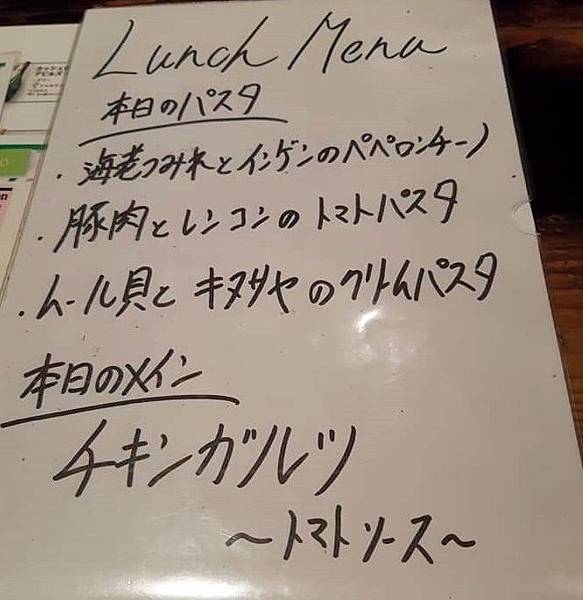 Lunch Menu
本日のパスタ
・海老つみれとインゲンのペペロンチーノ
・豚肉とレンコンのトマトパスタ
・ムール貝とキヌサヤのクリームパスタ
本日のメイン
チキンカツレツ
～トマトソース～